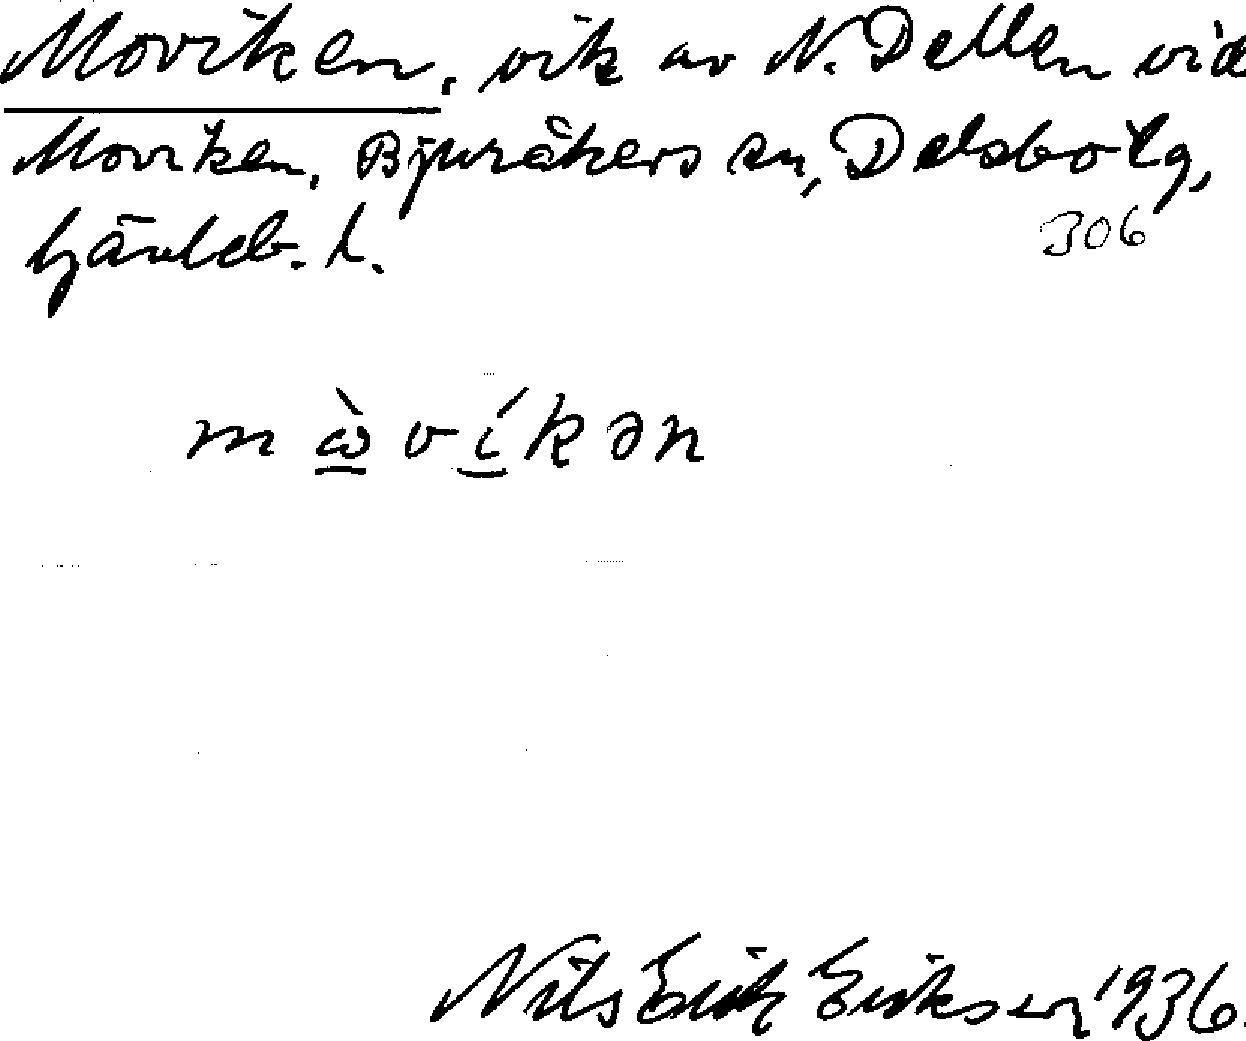 Moviken, vik av N. Dellen vid
Moviken, Bjuråkers sn, Delsbo tg,
Gävleb. l.
306
mὼ̲ví̲kən
Nils Erik Eriksson 1936.